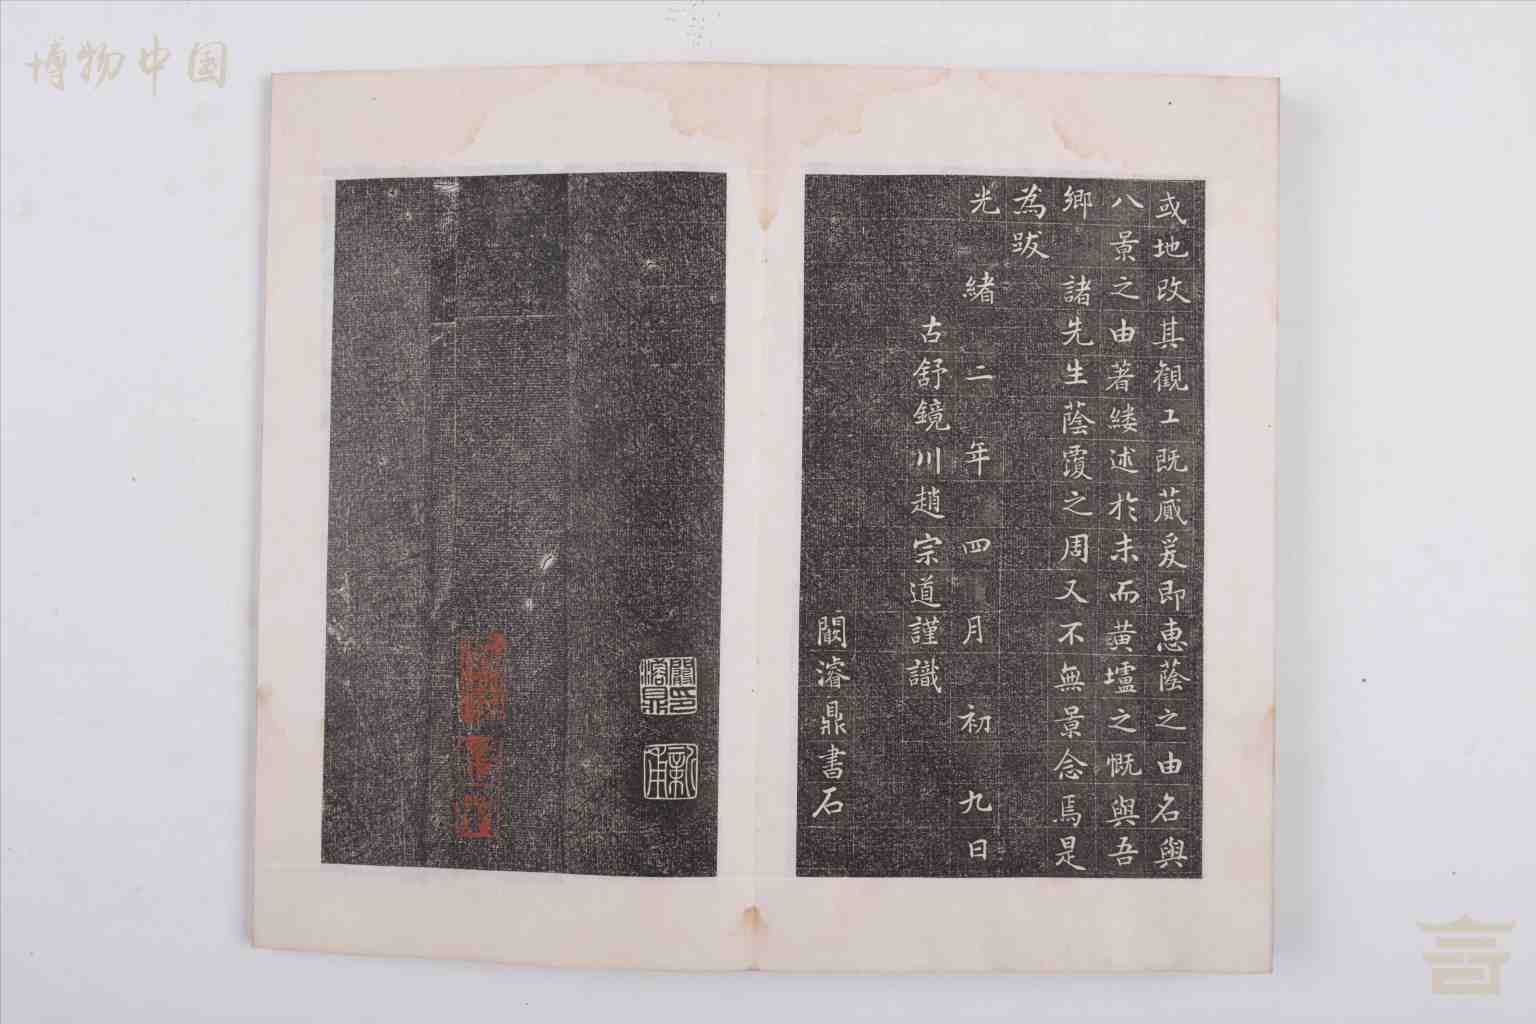 博物中国
或地改其觀工既蕆爰即惠蔭之由名與
八景之由著縷述於末而黃壚之慨與吾
鄉諸先生蔭覆之周又不無景念焉是
為跋
光緒二年四月初九日
古舒鏡川趙宗道謹識
闞濬鼎書石
闞印濬鼎